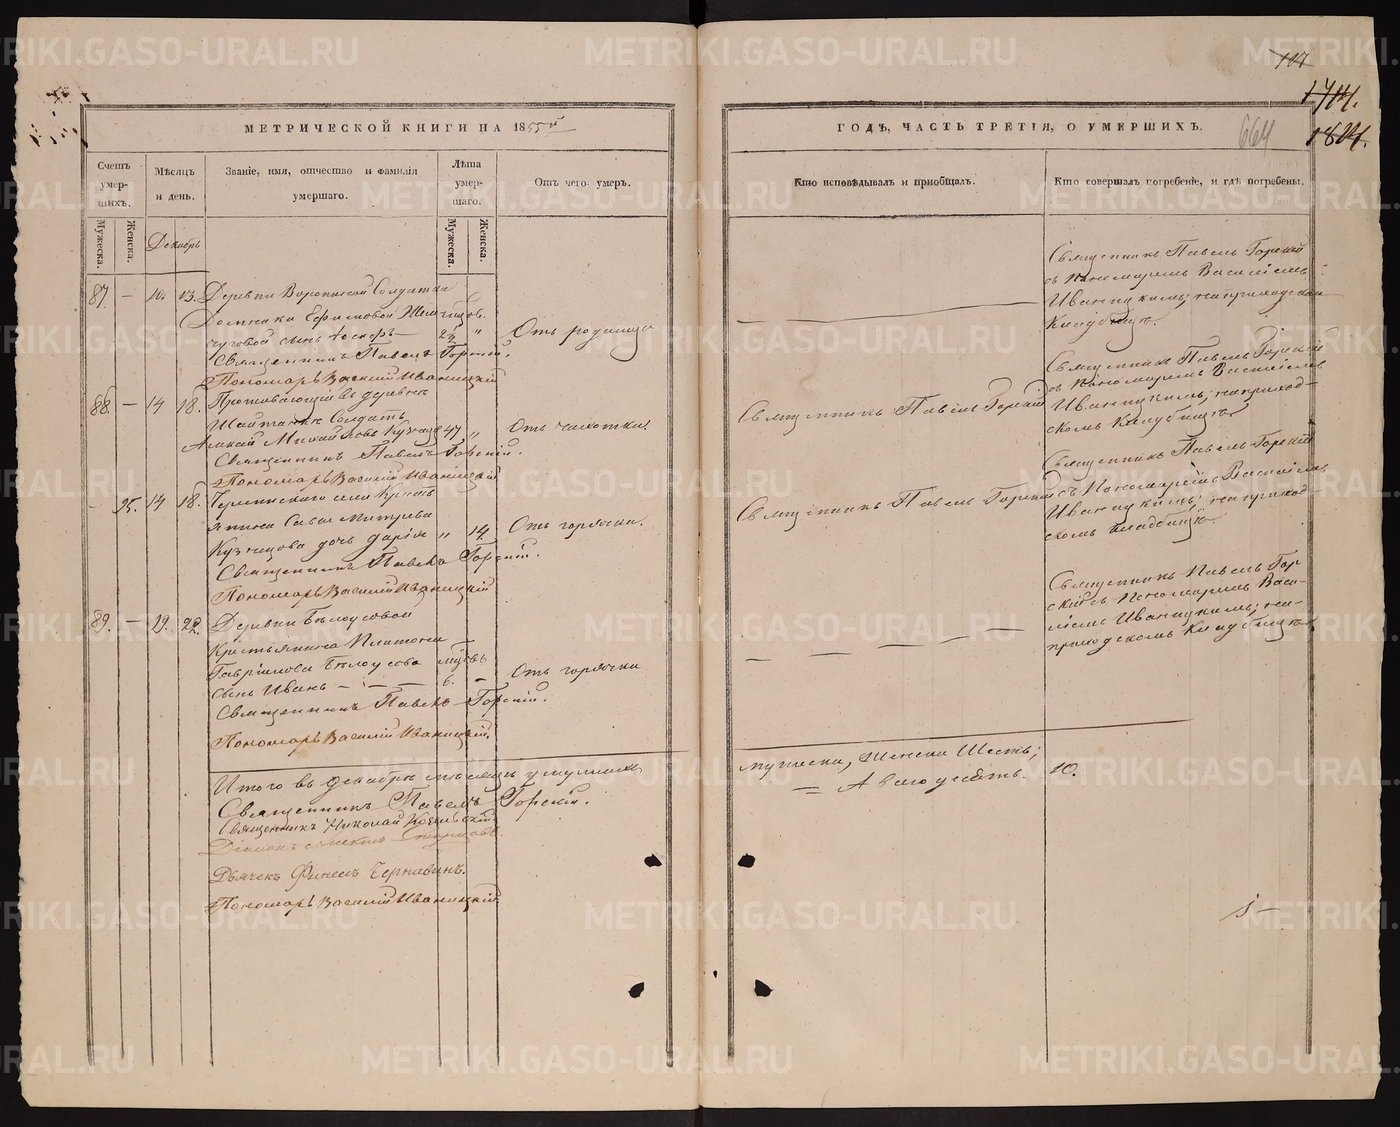 МЕТРИЧЕСКОЙ КНИГИ НА 1855й
Счетъ умер-шихъ.
Мужеска.
Женска.
Мѣсяцъ и день.
Званіе, имя, отчество и фамилія умершаго.
Лѣта умер-шаго.
Мужеска.
Женска.
Отъ чего умеръ.
Декабрь
87 — 10. 13. Деревни Ворониной Солдатки
Домники Ефимовой
чуговой сынъ
Отъ родимца
Священникъ Павелъ Горскій.
Пономарь Василій Иваницкій
88. — 14 18. Проживающій въ деревнѣ
Шайтанкѣ Солдатъ
Михайловъ 47 „
Отъ чахотки.
Священникъ Павелъ Горскій.
Пономарь Василій Иваницкій
— 95. 14 18. села Кресть
янина Савы
Кузнецова дочь Дарія „ 14.
Отъ горячки.
Священникъ Павелъ Горскій.
Пономарь Василій Иваницкій
89. — 19. 22. Деревни Бѣлоусовой
Крестьянина Платона —
Гавріилова Бѣлоусова
сынъ Иванъ — — — 6. —
Отъ горячки
Священникъ Павелъ Горскій.
Пономарь Василій Иваницкій.
Итого въ декабрѣ мѣсяцѣ умершихъ
Священникъ Павелъ Горскій.
Священникъ Николай
Діаконъ
Дьячекъ Финеесъ Чернавинъ.
Пономарь Василій Иваницкій
107
1714.
664
1804.
ГОДЪ, ЧАСТЬ ТРЕТІЯ, О УМЕРШИХЪ.
Кто исповѣдывалъ и пріобщалъ.
Кто совершалъ погребеніе, и гдѣ погребены.
Священникъ Павелъ Горскій
съ Пономаремъ Василіемъ
Иваницкимъ; на приходскомъ
Кладбищѣ.
Священникъ Павелъ Горскій
Священникъ Павелъ Горскій
съ Пономаремъ Василіемъ
Иваницкимъ; на приход-
скомъ Кладбищѣ
Священникъ Павелъ Горскій
Священникъ Павелъ Горскій
съ Пономаремъ Василіемъ
Иваницкимъ; на приход
скомъ Кладбищѣ.
Священникъ Павелъ Гор
скій съ Пономаремъ Васи-
ліемъ Иваницкимъ; на
приходскомъ Кладбищѣ
мужеска, Женска Шесть;
= А всего десять. 10.
METRIKI.GASO-URAL.RU